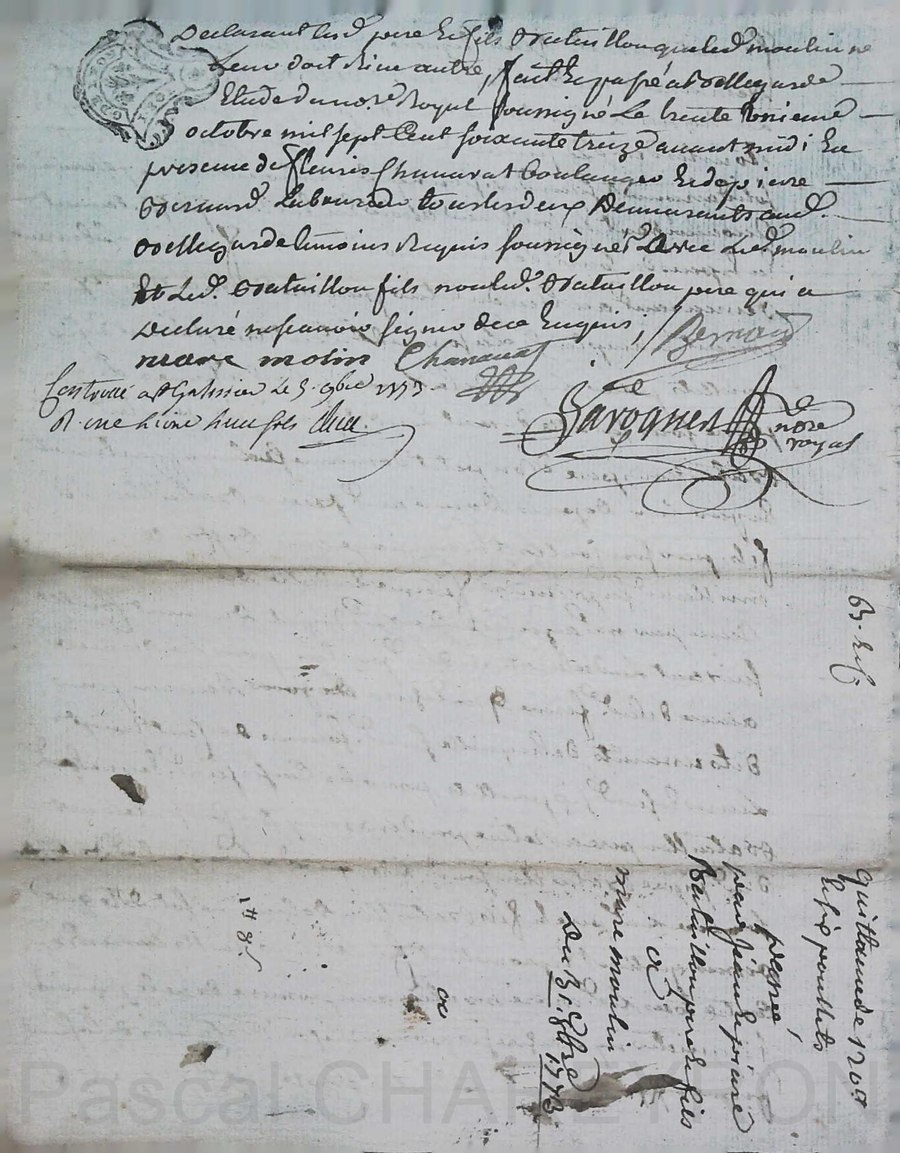 Declarant lesd pere et fils Bataillon que led moulin ne
leur doit rien autre, fait et passé a Bellegarde
Etude du nore Royal soussigné Le trente unieme
octobre mil sept Cent soixante treize avant midi En
presence de fleuris Chanavat boulanger et de pierre
Bernard Laboureur tous les deux Demeurants aud.
Bellegarde temoins Requis soussignés Avec Led moulin
Et Led. Bataillon fils non led. Bataillon pere qui a
Declaré ne scavoir signer de ce Enquis,
marc molin Chanavat Bernard
Controllé a st Galmier Le 3. 9bre 1773.
R. une livre huit sols
Favoques
nore
royal
Quittance de 120lt
et six poullets
passé
par jean et pierre
Bataillon pere et fils
a
marc moulin
Du 31. 8bre 1773
1lt 8s
Pascal CHAPEYRON